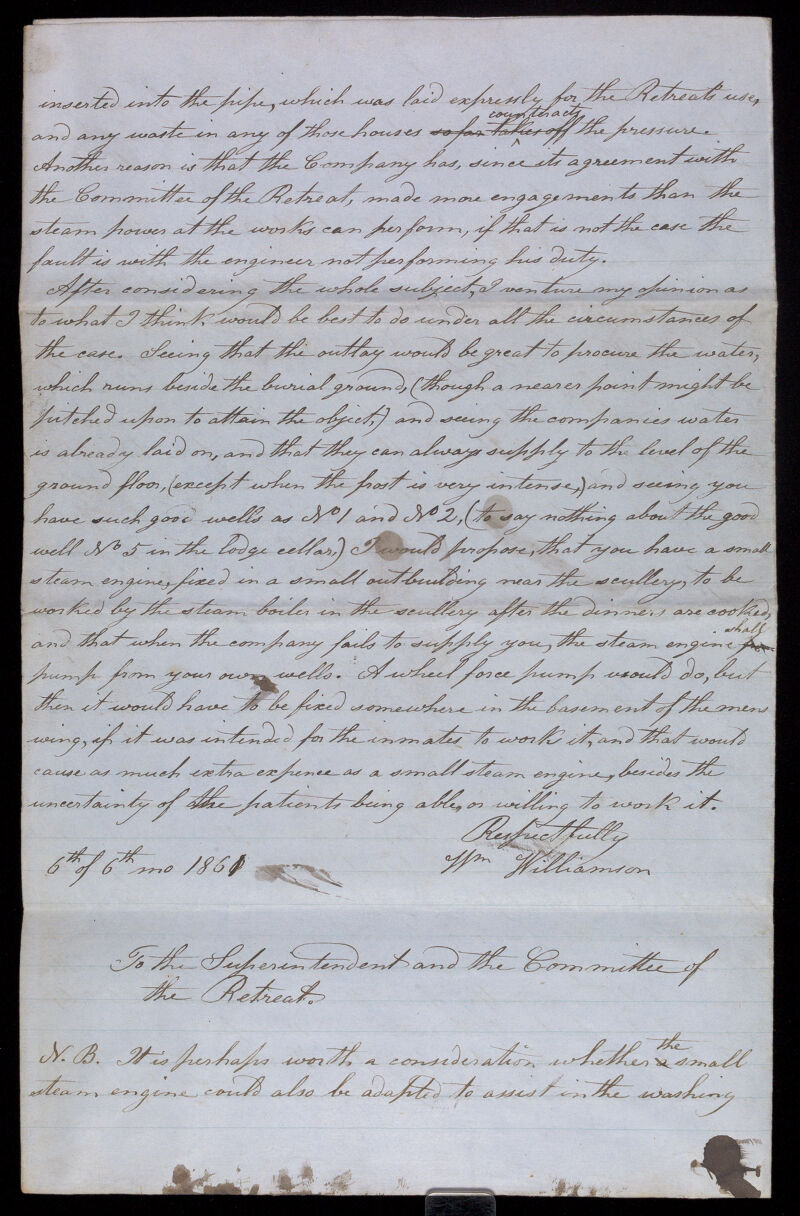 inserted into the pipe, which was laid expressly for the Retreat's use,
counteracts
and any waste in any of those houses so far takes off the pressure.
Another reason is that the Company has, since its agreement with
the Committee of the Retreat, made more engagements than the
steam power at the works can perform, if that is not the case the
fault is with the engineer not performing his duty.
After considering the whole subject, I venture my opinion as
to what I think would be best to do under all the circumstances of
the case. Seeing that the outlay would be great to procure the water,
which runs beside the burial ground, (though a nearer point might be
pitched upon to attain the object,) and seeing the companies water
is already laid on, and that they can always supply to the level of the
ground floor, (except when the frost is very intense,) and seeing you
have such good wells as No 1 and No 2, (to say nothing about the good
well No 5 in the lodge cellar,) I would propose, that you have a small
steam engine, fixed in a small outbuilding near the scullery, to be
worked by the steam boiler in the scullery after the dinners are cooked,
shall
and that when the company fails to supply you, the steam engine
pump from your own wells. A wheel force pump would do, but
then it would have to be fixed somewhere in the basement of the mens
wing, if it was intended for the inmates to work it, and that would
cause as much extra expence as a small steam engine, besides the
uncertainty of the patients being able, or willing to work it.
Respectfully
6th of 6th mo 1861 Wm Williamson
To the Superintendent and the Committee of
the Retreat.
the
N.B. It is perhaps worth a consideration whether a small
steam engine could also be adapted to assist in the washing